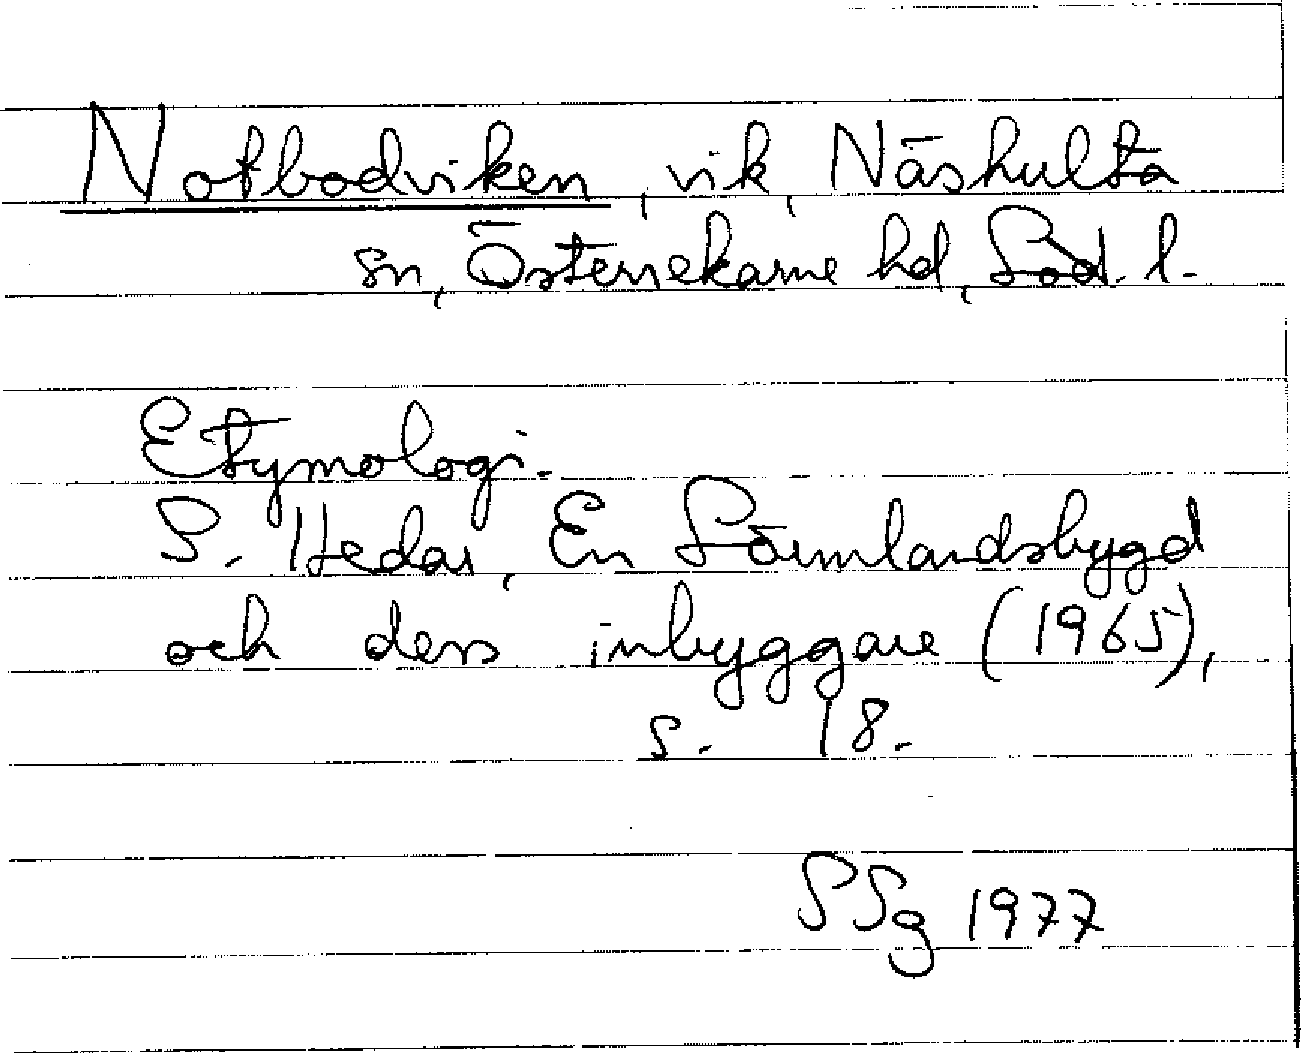 Notbodviken, vik, Näshulta
sn, Österrekarne hd, Söd. l.
Etymologi.
S. Hedar, En Sörmlandsbygd
och dess inbyggare (1965),
s. 18.
SSg 1977